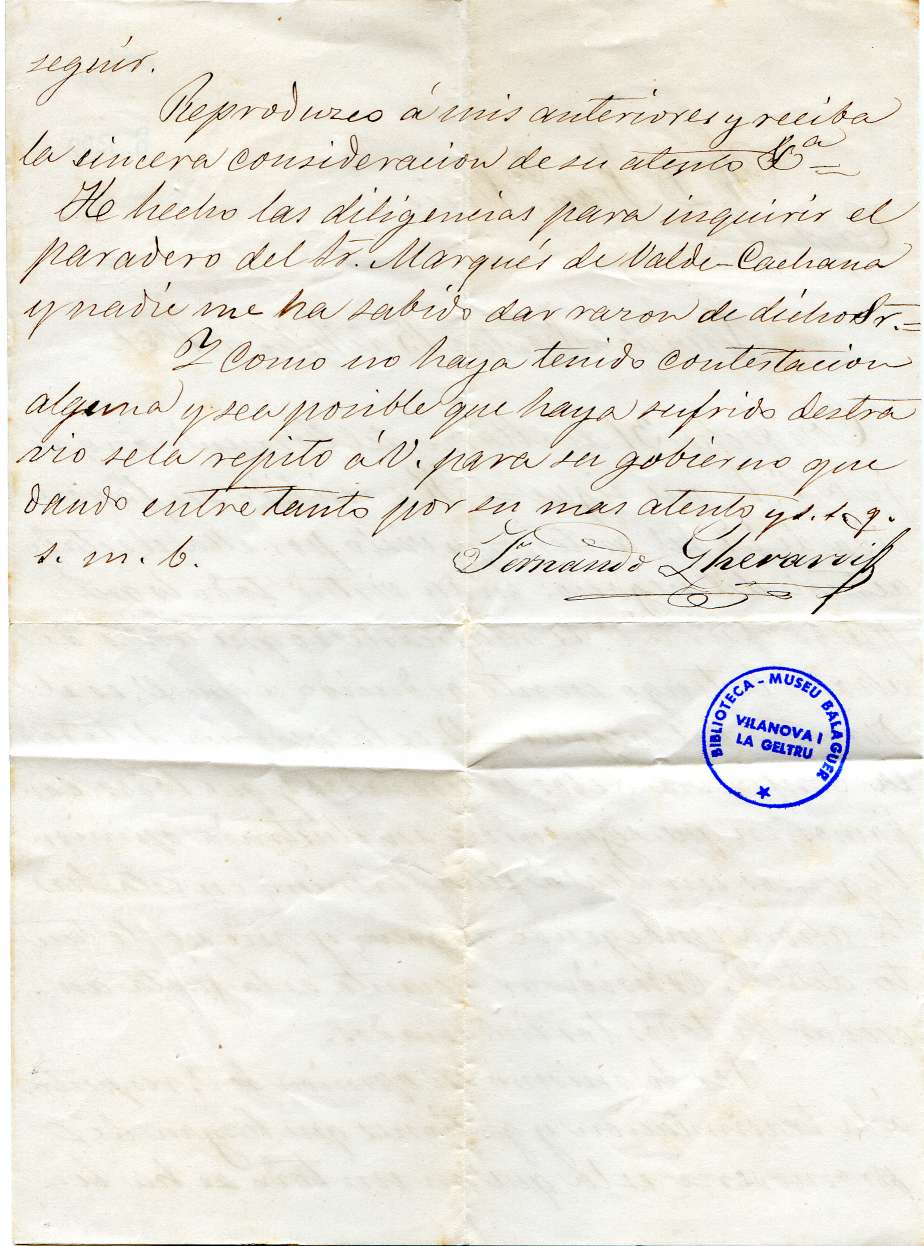 seguir.
Reproduzco á mis anteriores y reciba
la sincera consideracion de su atento
He hecho las diligencias para inquirir el
paradero del Sr. Marqués de Valde-Cachana
y nadie me ha sabido dar razon de dicho Sr.=
Y como no haya tenido contestacion
alguna y sea posible que haya sufrido destra
vio sela repito á V. para su gobierno que
dando entre tanto por su mas atento y s. s. q.
s. m. b.
Fernando Gherardi
BIBLIOTECA - MUSEU BALAGUER
VILANOVA I
LA GELTRU